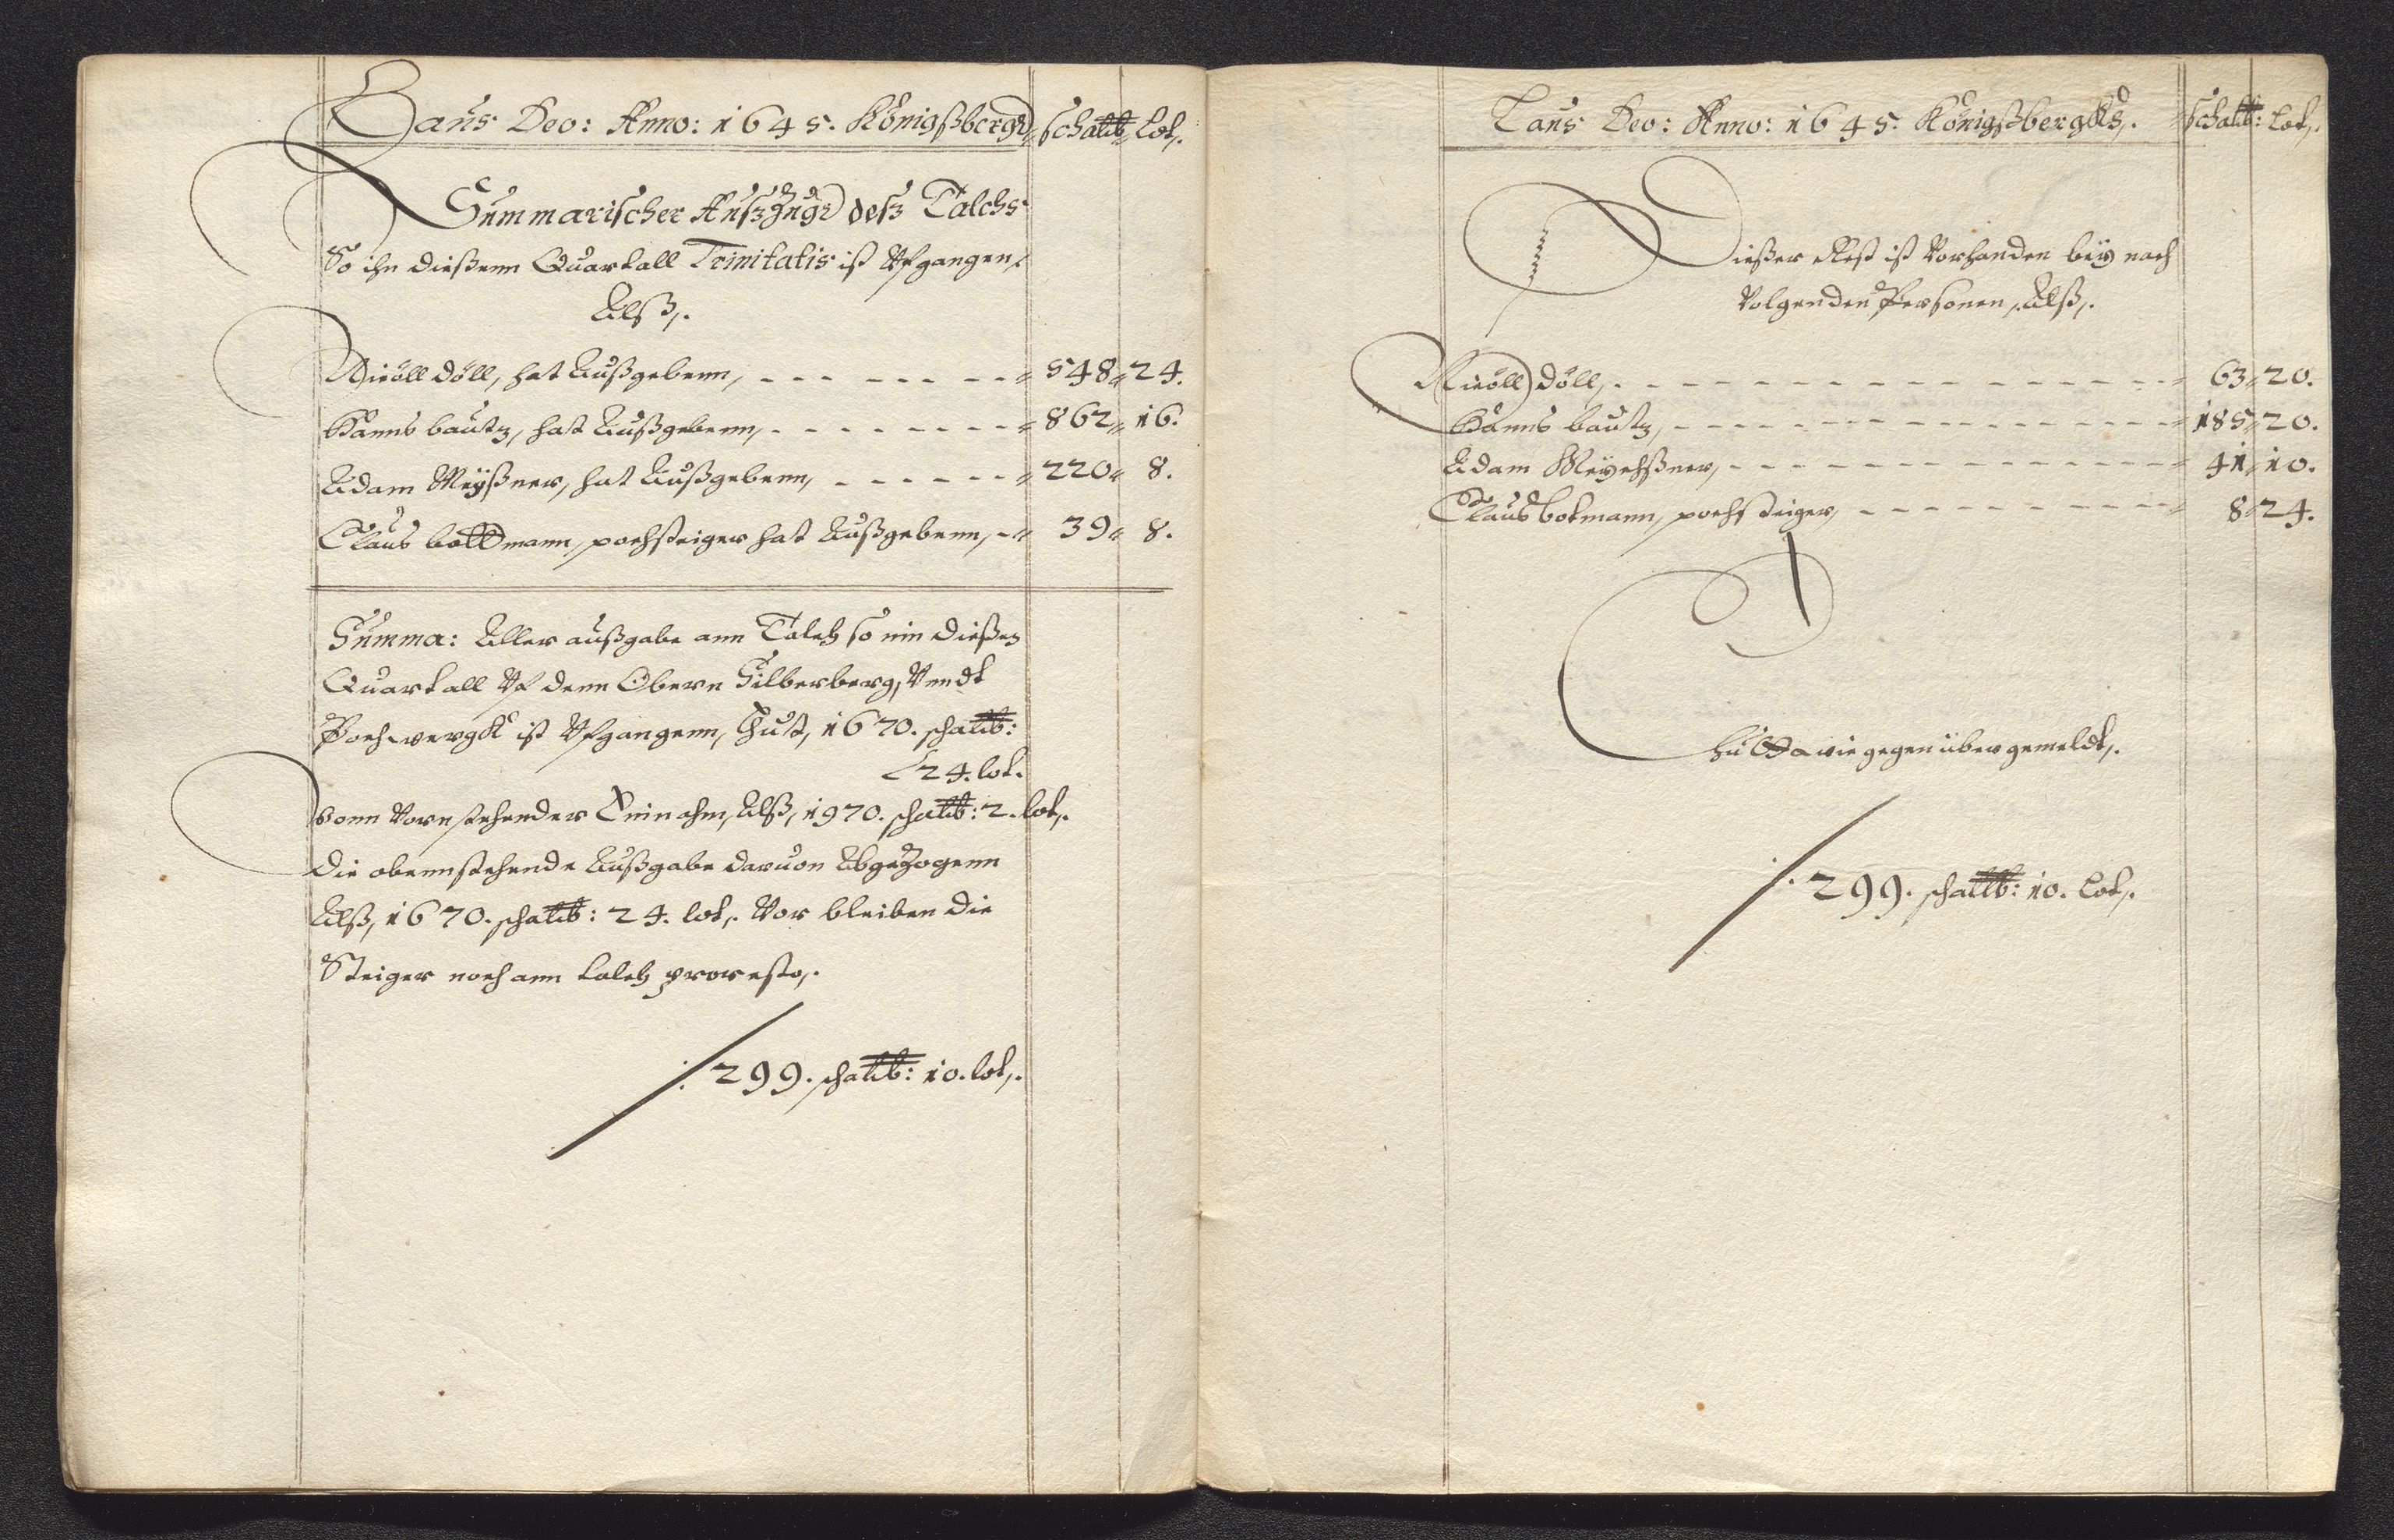 Laus Deo: Anno: 1645. Königßbergk schal℔ lot,.
Summarischer Außzugk deß Talchs
So ihn dießenn Quartall Trinitatis ist Vfgangen,
Alß,.
Nicöll Döll, hat Außgebenn, 548 24.
Hanns bautz, hat Außgebenn, 862 16.
Adam Meÿßner, hat Außgebenn, 220 8.
Claus bottmann, pochsteiger hat Außgebenn, 39 8.
Summa: Aller außgabe ann Talch so inn dießen
Quartall Vf denn Obern Silberberg, Vnndt
Pochwergk ist Vfgangenn, Thut, 1670. schal℔:
24. lot.
Vonn Vornstehender Einnahm, Alß, 1970. schal℔: 2. lot,.
die obennstehende Außgabe daruon Abgezogenn
Alß, 1670. schal℔: 24. lot,. Vor bleiben die
Steiger noch ann talch pro resto,.
299. schal℔: 10. lot,.
Laus Deo: Anno: 1645. Königßbergks,. schal℔: lot,.
Dießer Rest ist Vorhanden beÿ nach
Volgenden Personen, Alß,.
Nicöll Döll, 63 20.
Hanns bautz, 185 20.
Adam Meÿchßner, 41 10.
Claus botmann, pochsteiger, 8 24.
wie gegenüber gemeldt,.
299. schal℔: 10. Lot,.